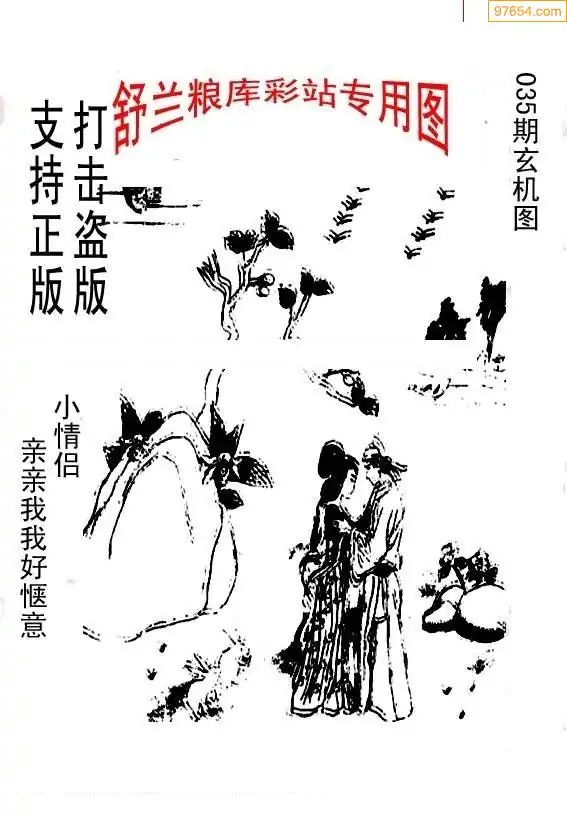 97654.com
舒兰粮库彩站专用图
035期玄机图
打击盗版
支持正版
小情侣
亲亲我我好惬意